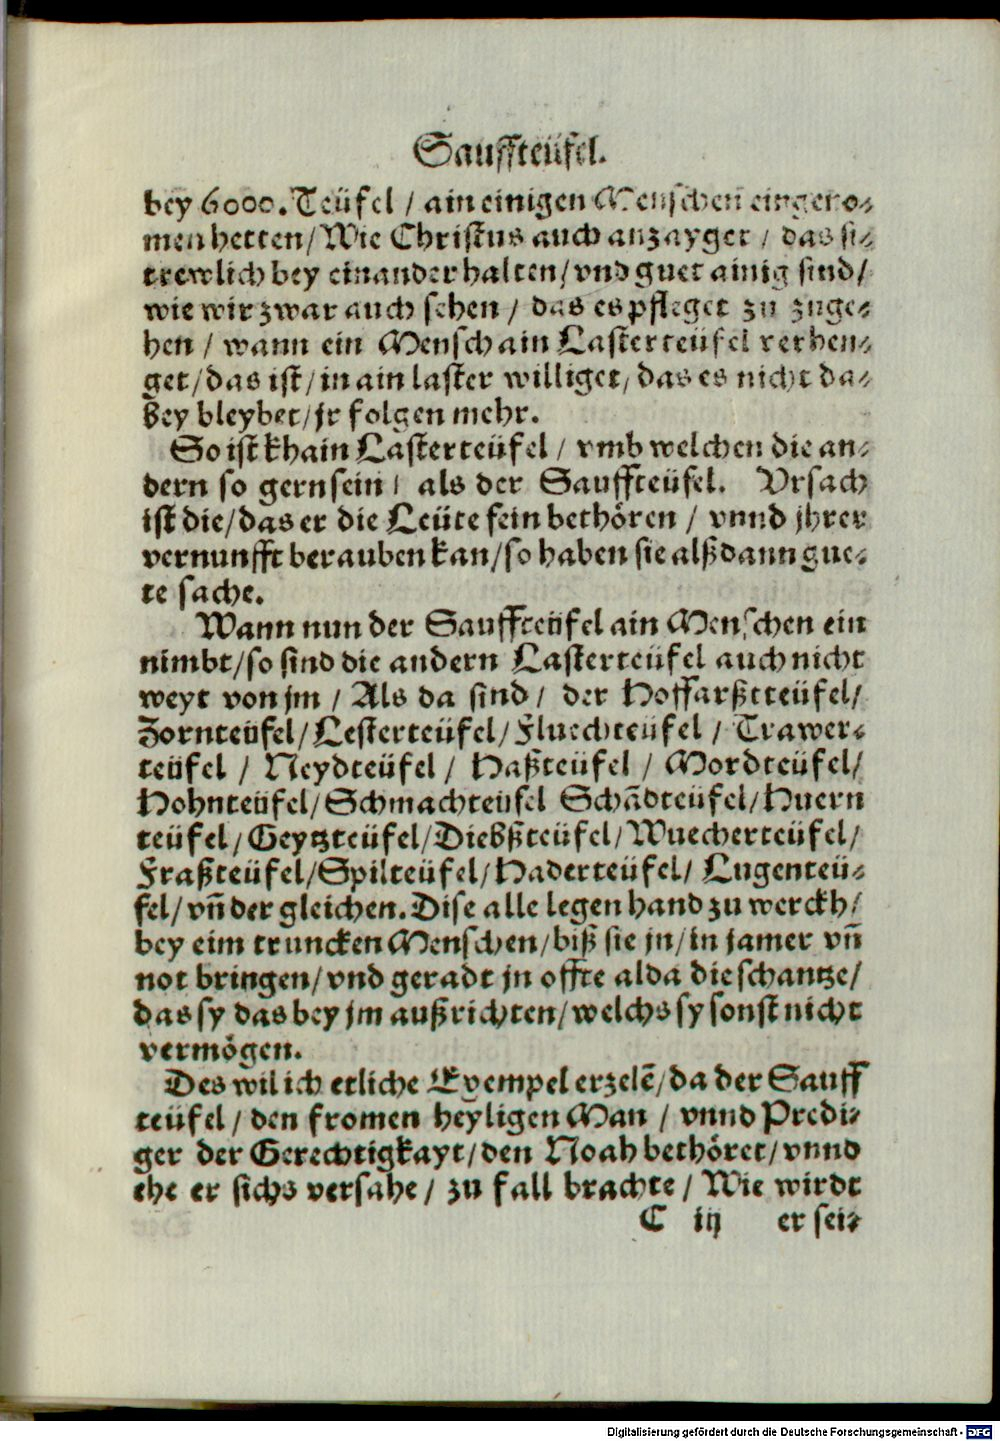 Sauffteüfel.
bey 6000. Teüfel / ain einigen Menschen eingeno-
men hetten / Wie Christus auch anzayget / das si-
trewlich bey einander halten / vnd guet ainig sind /
wie wir zwar auch sehen / das es pfleget zu zuge-
hen / wann ein Mensch ain Lasterteüfel verhen-
get / das ist / in ain laster williget / das es nicht da-
bey bleybet / jr folgen mehr.
So ist khain Lasterteüfel / vmb welchen die an-
dern so gern sein / als der Sauffteüfel. Vrsach
ist die / das er die Leüte fein bethören / vnnd jhrer
vernunfft berauben kan / so haben sie alßdann gue-
te sache.
Wann nun der Sauffteüfel ain Menschen ein
nimbt / so sind die andern Lasterteüfel auch nicht
weyt von jm / Als da sind / der Hoffarßtteüfel /
Zornteüfel / Lesterteüfel / Fluechteüfel / Trawer-
teüfel / Neydteüfel / Haßteüfel / Mordteüfel /
Hohnteüfel / Schmachteüfel Schãdteüfel / Huern
teüfel / Geytzteüfel / Diebßteüfel / Wuecherteüfel /
Fraßteüfel / Spilteüfel / Haderteüfel / Lugenteü-
fel / vñ der gleichen. Dise alle legen hand zu werckh /
bey eim truncken Menschen / biß sie jn / in jamer vñ
not bringen / vnd geradt jn offte alda die schantze /
das sy das bey jm außrichten / welchs sy sonst nicht
vermögen.
Des wil ich etliche Exempel erzelẽ / da der Sauff
teüfel / den fromen heyligen Man / vnnd Predi-
ger der Gerechtigkayt / den Noah bethöret / vnnd
ehe er sichs versahe / zu fall brachte / Wie wirdt
C iij er sei-
Digitalisierung gefördert durch die Deutsche Forschungsgemeinschaft - DFG